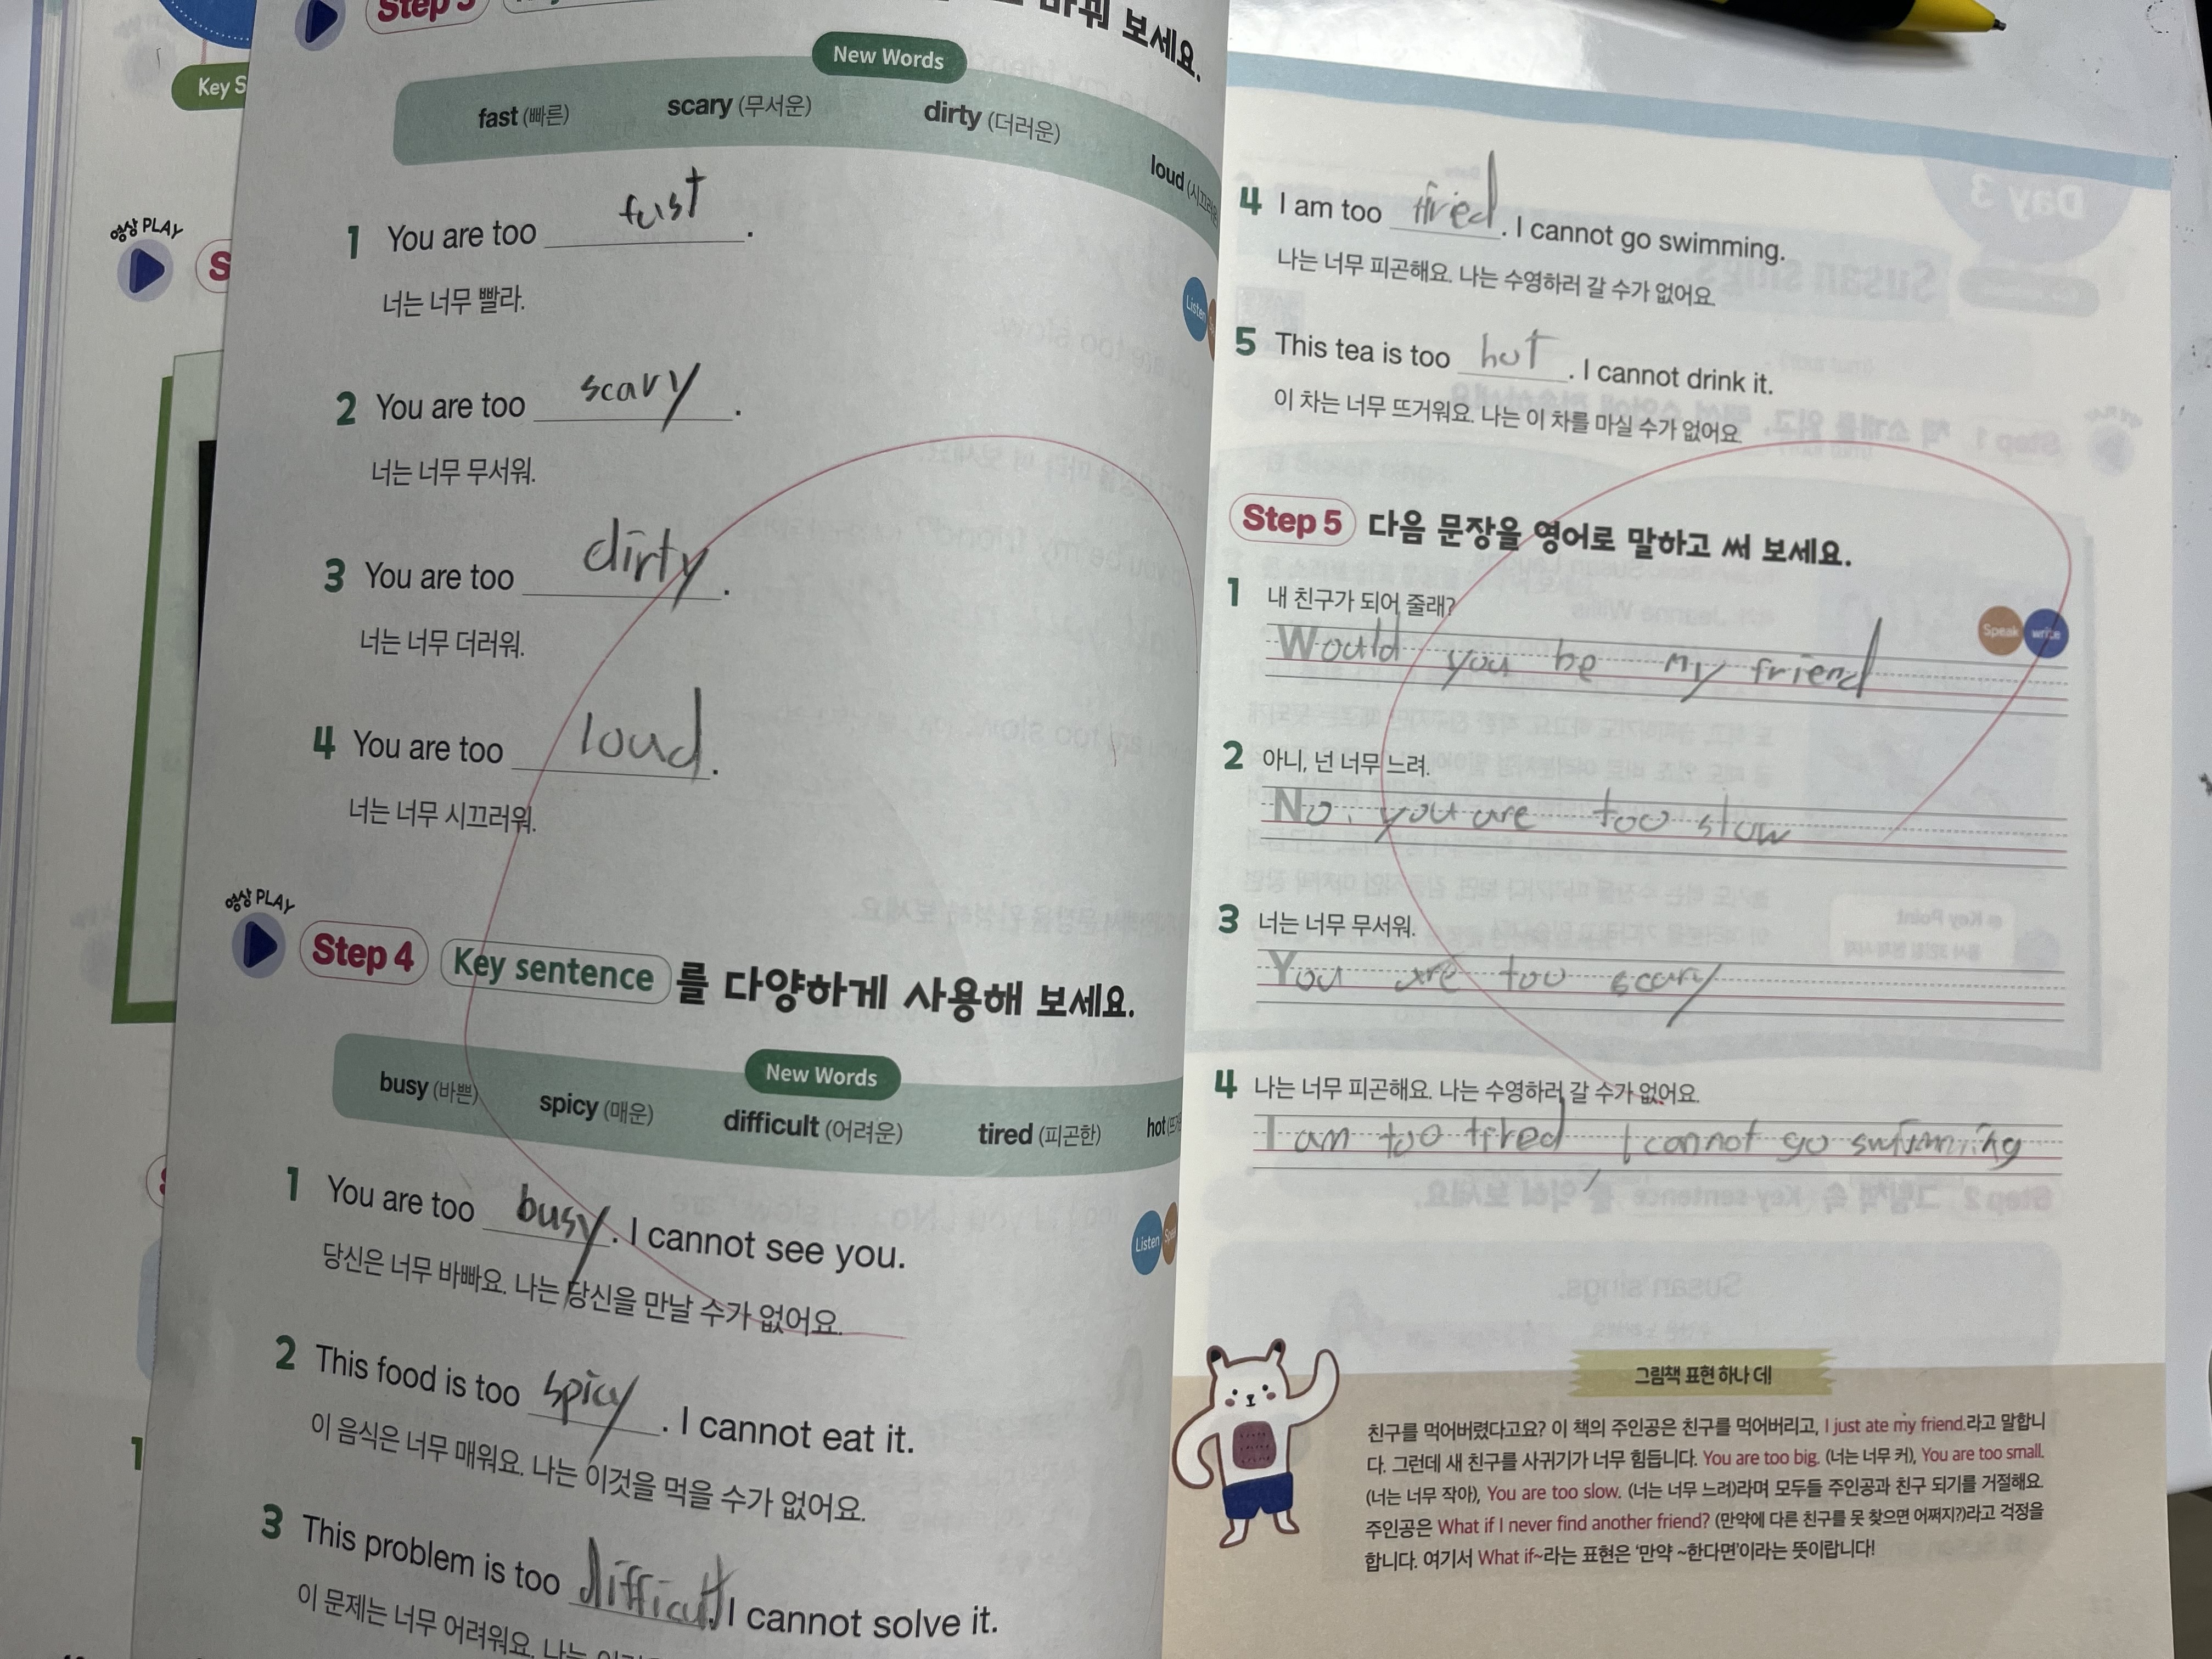 Step 3
바꿔 보세요.
New Words
fast (빠른) scary (무서운) dirty (더러운) loud (시끄러운
1 You are too fast.
너는 너무 빨라.
2 You are too scary.
너는 너무 무서워.
3 You are too dirty.
너는 너무 더러워.
4 You are too loud.
너는 너무 시끄러워.
영상 PLAY
Step 4 Key sentence 를 다양하게 사용해 보세요.
New Words
busy (바쁜) spicy (매운) difficult (어려운) tired (피곤한) hot
Listen
1 You are too busy. I cannot see you.
당신은 너무 바빠요. 나는 당신을 만날 수가 없어요.
2 This food is too spicy. I cannot eat it.
이 음식은 너무 매워요. 나는 이것을 먹을 수가 없어요.
3 This problem is too difficult. I cannot solve it.
이 문제는 너무 어려워요. 나는
Key S
영상 PLAY
S
1
Listen
4 I am too tired. I cannot go swimming.
나는 너무 피곤해요. 나는 수영하러 갈 수가 없어요.
5 This tea is too hot. I cannot drink it.
이 차는 너무 뜨거워요. 나는 이 차를 마실 수가 없어요.
Step 5 다음 문장을 영어로 말하고 써 보세요.
Speak write
1 내 친구가 되어 줄래?
Would you be my friend
2 아니, 넌 너무 느려.
No. you are too slow
3 너는 너무 무서워.
You are too scary
4 나는 너무 피곤해요. 나는 수영하러 갈 수가 없어요.
I am too tired, I cannot go swimming
그림책 표현 하나 데!
친구를 먹어버렸다고요? 이 책의 주인공은 친구를 먹어버리고, I just ate my friend.라고 말합니
다. 그런데 새 친구를 사귀기가 너무 힘듭니다. You are too big. (너는 너무 커), You are too small.
(너는 너무 작아), You are too slow. (너는 너무 느려)라며 모두들 주인공과 친구 되기를 거절해요.
주인공은 What if I never find another friend? (만약에 다른 친구를 못 찾으면 어쩌지?)라고 걱정을
합니다. 여기서 What if~라는 표현은 '만약 ~한다면'이라는 뜻이랍니다!